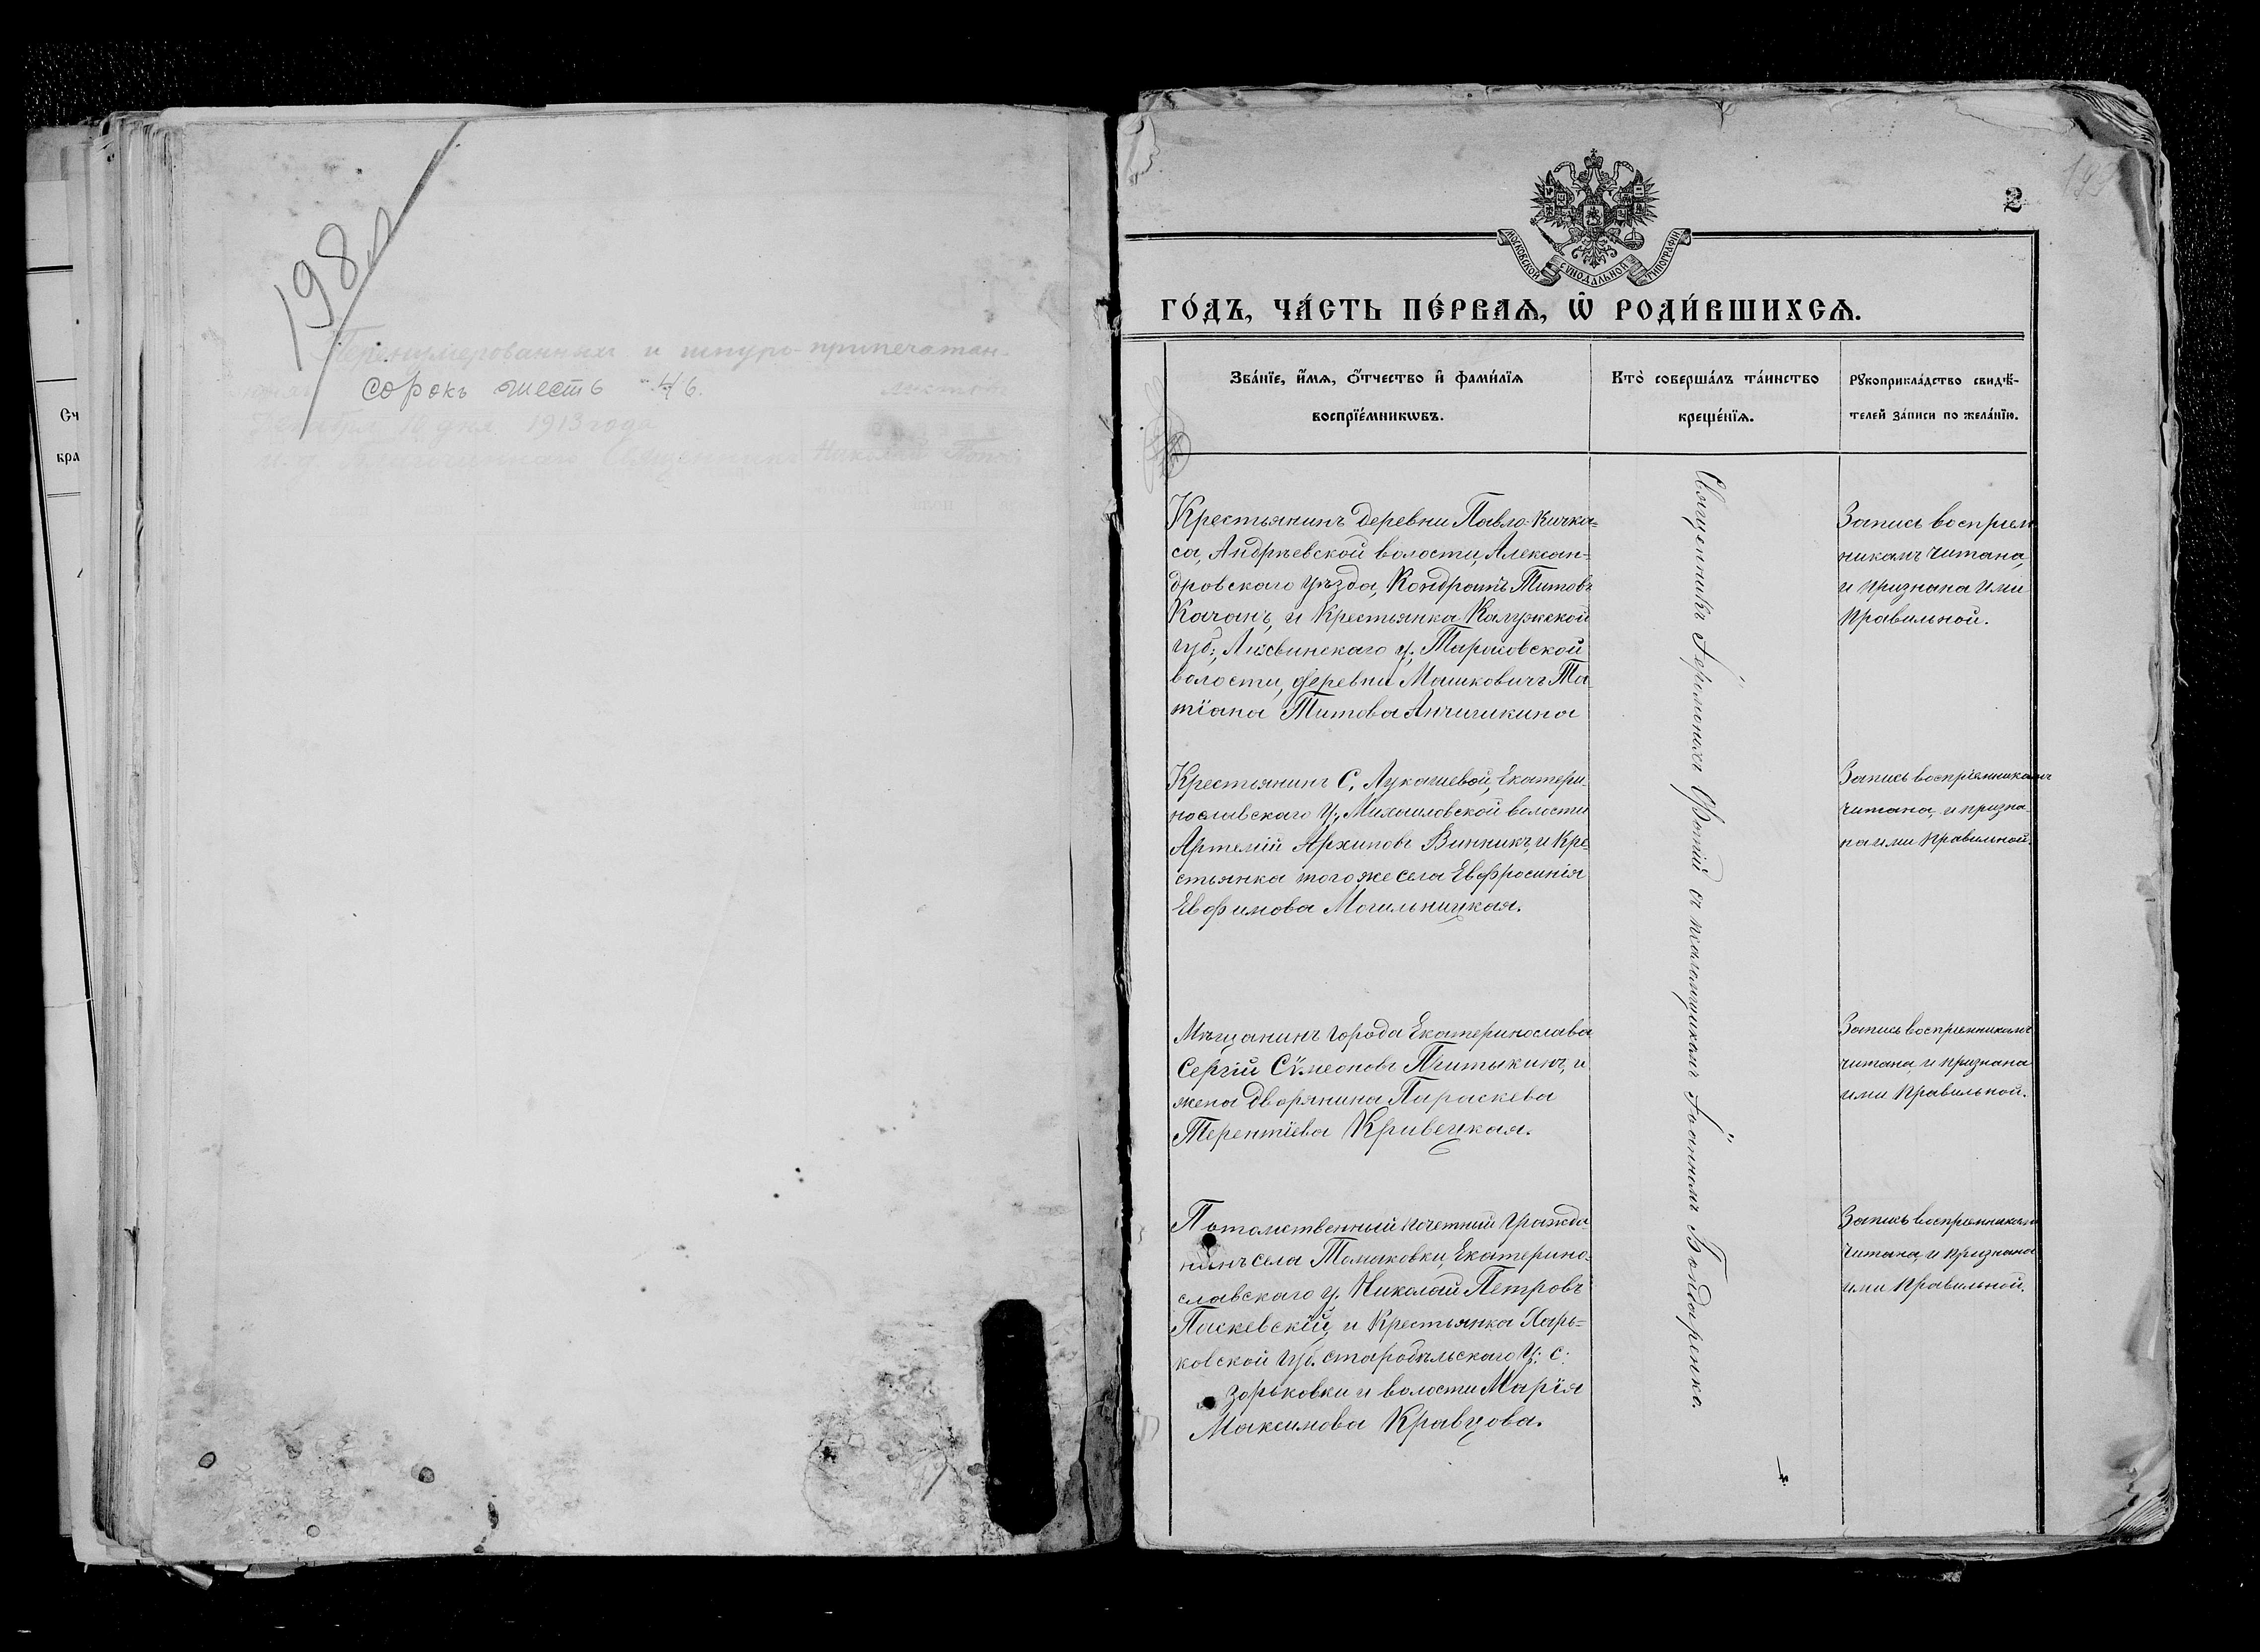 198
Перенумерованныхъ и шнуро-припечатан-
сорокъ шесть 46. листовъ
дня 1913 года
Священникъ Николай
Сч
кра
2
МОСКОВСКОЙ СѴНОДАЛЬНОЙ ТИПОГРАФІИ
ГО́ДЪ, ЧА́СТЬ ПЕ́РВАѦ, Ѡ҆ РОДИ́ВШИХСѦ.
Зва́нїе, и҆́мѧ, ѻ҆́тчество и҆ фами́лїѧ
воспрїе́мникѡвъ.
Кто̀ соверша́лъ та́инство
креще́нїѧ.
Рꙋкоприкла́дство свидѣ́-
телей за́писи по жела́нїю.
Крестьянинъ деревни Павло-Кичка=
са, Андрѣевской волости, Алексан-
дровскаго уѣзда, Кондратъ Титовъ
Качанъ, и Крестьянка Калужской
губ:, Лихвинскаго у;
волости, деревни Машковичъ Та-
тіана Титова Анчишкина
Запись воспріем
никамъ читана,
и признана ими
правильной.
Крестьянинъ С. Лукашевой, Екатери-
нославскаго У:, Михаиловской волости
Артемій Архиповъ Винникъ, и Кре-
стьянка того же села Евфросинія
Евфимова Могильницкая.
Запись воспріемникамъ
читана, и призна-
на ими правильной.
Мѣщанинъ города Екатеринослава
Сергій Сѵмеоновъ Пѣтыкинъ, и
жена дворянина Параскева
Терентіева Кривецкая.
Запись воспріемникамъ
читана и признана
ими правильной.
Потомственный почетный гражда-
нинъ села Томаковки, Екатерино-
славскаго у. Николай Петровъ
Паскевскій, и Крестьянка Харь=
ковской губ. старобѣльскаго У: с:
зорьковки и волости Марія
Максимова Кравцова.
Запись воспріемникамъ
читана, и признана
ими правильной.
Священникъ Іеромонахъ Фотій съ псаломщикомъ Іоанномъ Бондаренко.